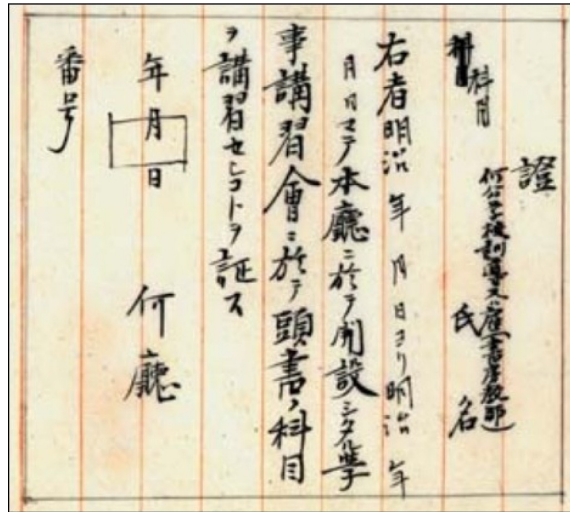 證
何公学校訓導又ハ舊書房教師
氏名
科目
右者明治 年 月 日ヨリ明治 年
月 日マテ本廳ニ於テ開設シタル學
事講習會ニ於テ頭書ノ科目
ヲ講習セシコトヲ証ス
年 月 日
何廳
番号